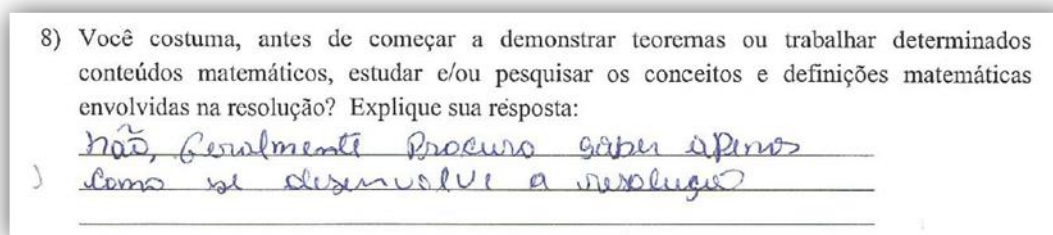 8) Você costuma, antes de começar a demonstrar teoremas ou trabalhar determinados
conteúdos matemáticos, estudar e/ou pesquisar os conceitos e definições matemáticas
envolvidas na resolução? Explique sua resposta:
não, Geralmente Procuro saber apenas
como se desenvolve a resolução